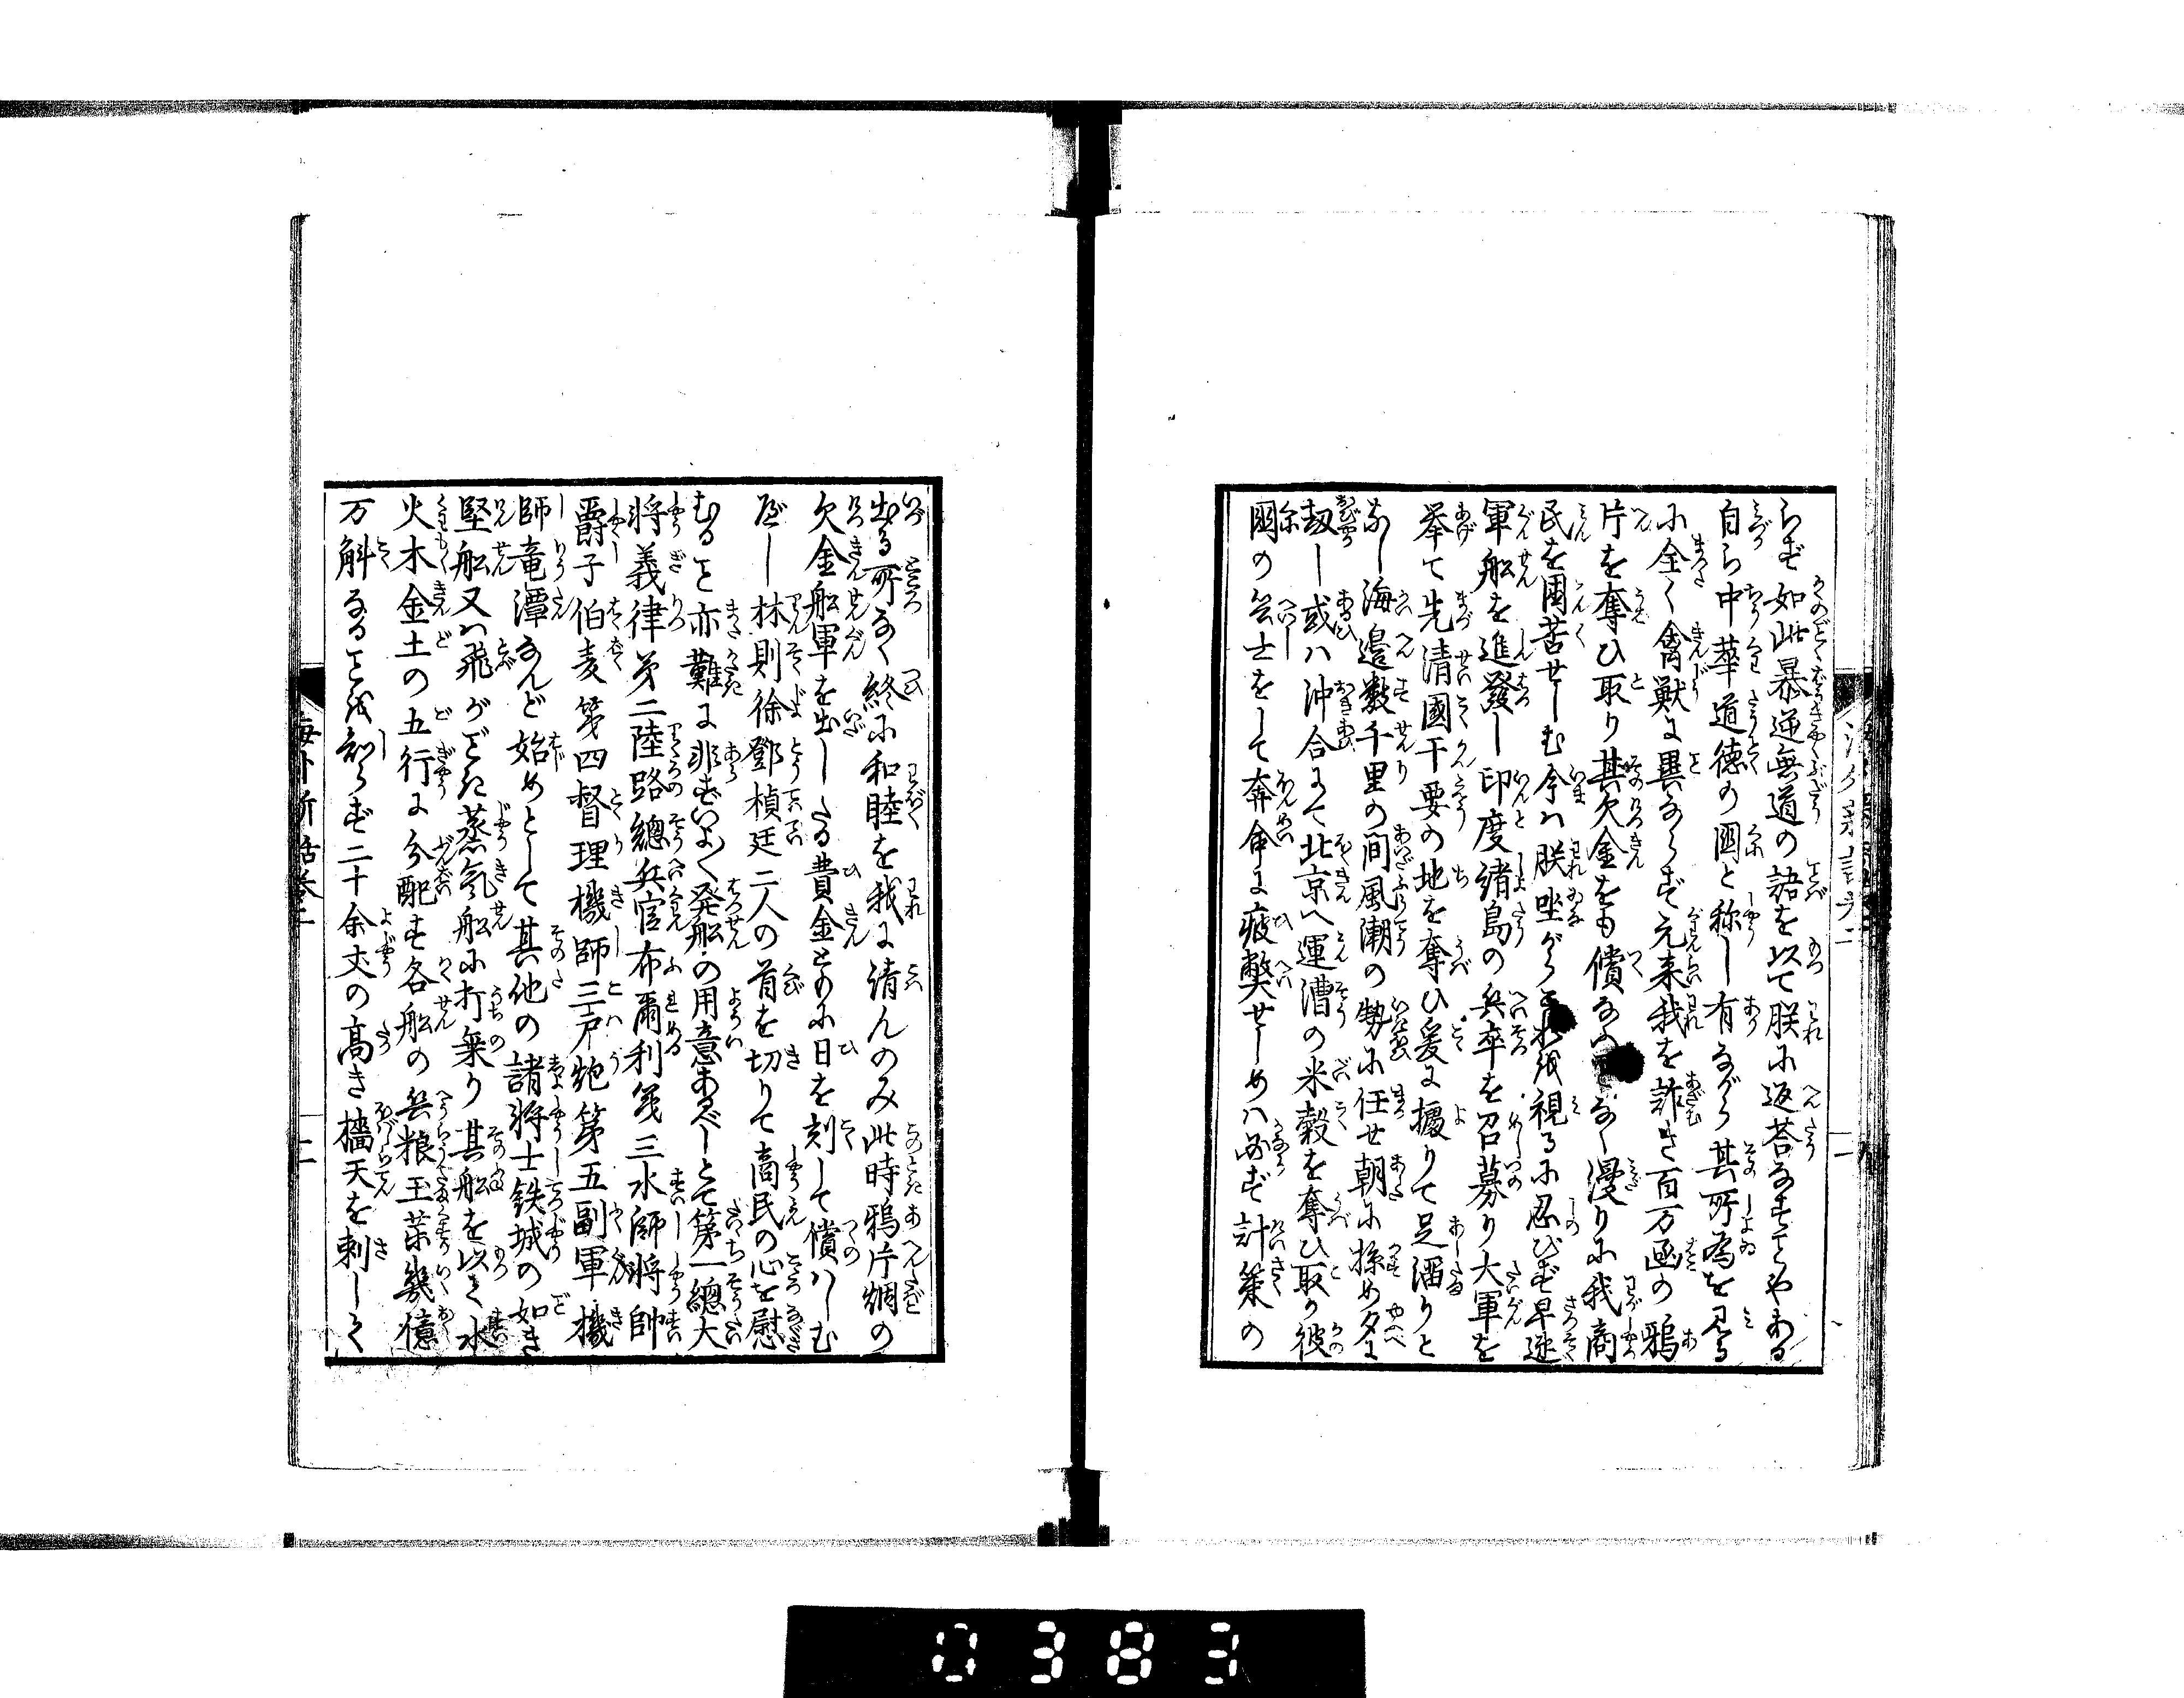 らず如此暴逆無道の語を以て朕に返荅なすことやある
自ら中華道徳の國と称し有ながら其所為を見る
に全く禽獣に異ならず元来我を詐き百万函の鴉
片を奪ひ取り其欠金をも償なふ なく漫りに我商
民を困苦せしむ今ハ朕坐がらこれを視るに忍びず早速
軍船を進發し印度諸島の兵卒を召募り大軍を
挙て先清國干要の地を奪ひ爰に據りて足溜りと
なし海邉數千里の間風潮の勢に任せ朝に掠め夕に
刼し或ハ沖合にて北京へ運漕の米穀を奪ひ取り彼
國の兵士をして奔命に疲弊せしめハ必ず計策の
出る所なく終に和睦を我に請んのみ此時鴉片烟の
欠金船軍を出したる費金ともに日を刻して償ハしむ
べし林則徐鄧楨廷二人の首を切りて商民の心を慰
むること亦難に非ずいよ〱発船の用意あるべしとて第一總大
将義律第二陸路總兵官布爾利第三水師將帥
爵子伯麦第四督理機師三戸炮第五副軍機
師竜潭なんど始めとして其他の諸将士鉄城の如き
堅船又ハ飛がごとき蒸氣船に打乗り其船を以て水
火木金土の五行に分配す各船の兵粮玉薬幾億
万斛なることを知らず二十余丈の高き檣天を刺して
海外新話巻二
二
0383